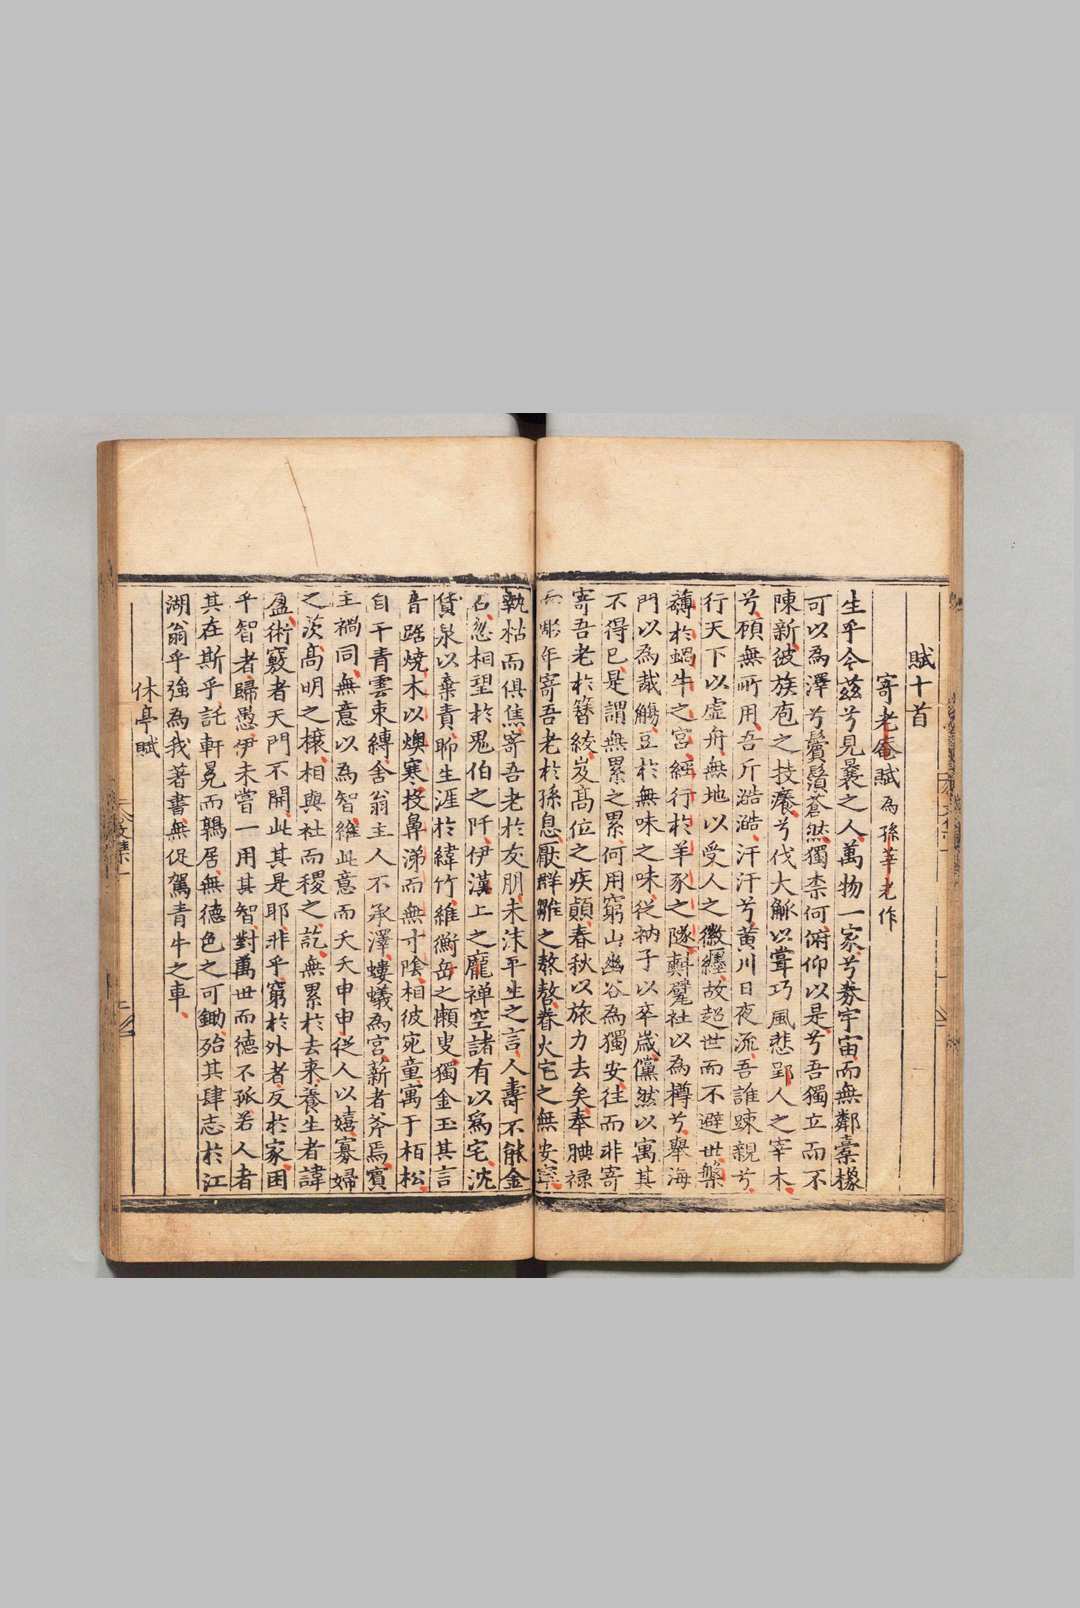 賦十首
寄老庵賦為孫莘老作
生乎今茲兮見曩之人萬物一家兮劵宇宙而無鄰稾椽
可以為澤兮鬢鬚蒼然獨柰何俯仰以是兮吾獨立而不
陳新彼族庖之技癢兮伐大觚以嘗巧風悲郢人之宰木
兮顧無所用吾斤浩浩汗汗兮黃川日夜流吾誰踈親兮
行天下以虛舟無地以受人之徽纆故超世而不避世槃
礴於蝸牛之宮經行於羊豕之隊斮櫟社以為樽兮舉海
門以為胾觴豆於無味之味從衲子以卒歲儻然以寓其
不得已是謂無累之累何用窮山幽谷為獨安往而非寄
寄吾老於簪紱岌高位之疾顛春秋以旅力去矣奉腆祿
而彫年寄吾老於孫息厭群雛之嗷嗷眷火宅之無安寧
執枯而俱焦寄吾老於友朋未沫平生之言人壽不能金
石忽相望於鬼伯之阡伊漢上之龐禪空諸有以為宅沈
貨泉以棄責聊生涯於緯竹維衡岳之懶叟獨金玉其言
音踞燒木以燠寒披鼻涕而無寸陰相彼宛童寓于栢松
自干青雲束縛舍翁主人不承澤螻蟻為宮薪者斧焉賓
主禍同無意以為智維此意而夭夭申申從人以嬉寡婦
之茨高明之榱相與社而稷之訖無累於去來養生者諱
盈術竅者天門不開此其是耶非乎窮於外者反於家困
乎智者歸愚伊未嘗一用其智對萬世而德不孤若人者
其在斯乎託軒冕而鶉居無德色之可鋤殆其肆志於江
湖翁乎強為我著書無促駕青牛之車
休亭賦